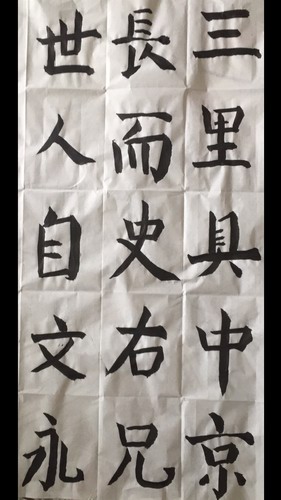 三里具中京
長而史右兄
世人自文永